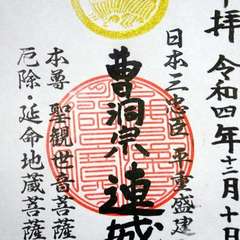 拝 令和四年十二月十日
日本三忠臣 平重盛建
曹洞宗 連城
本尊 聖観世音菩薩
厄除・延命地蔵菩薩